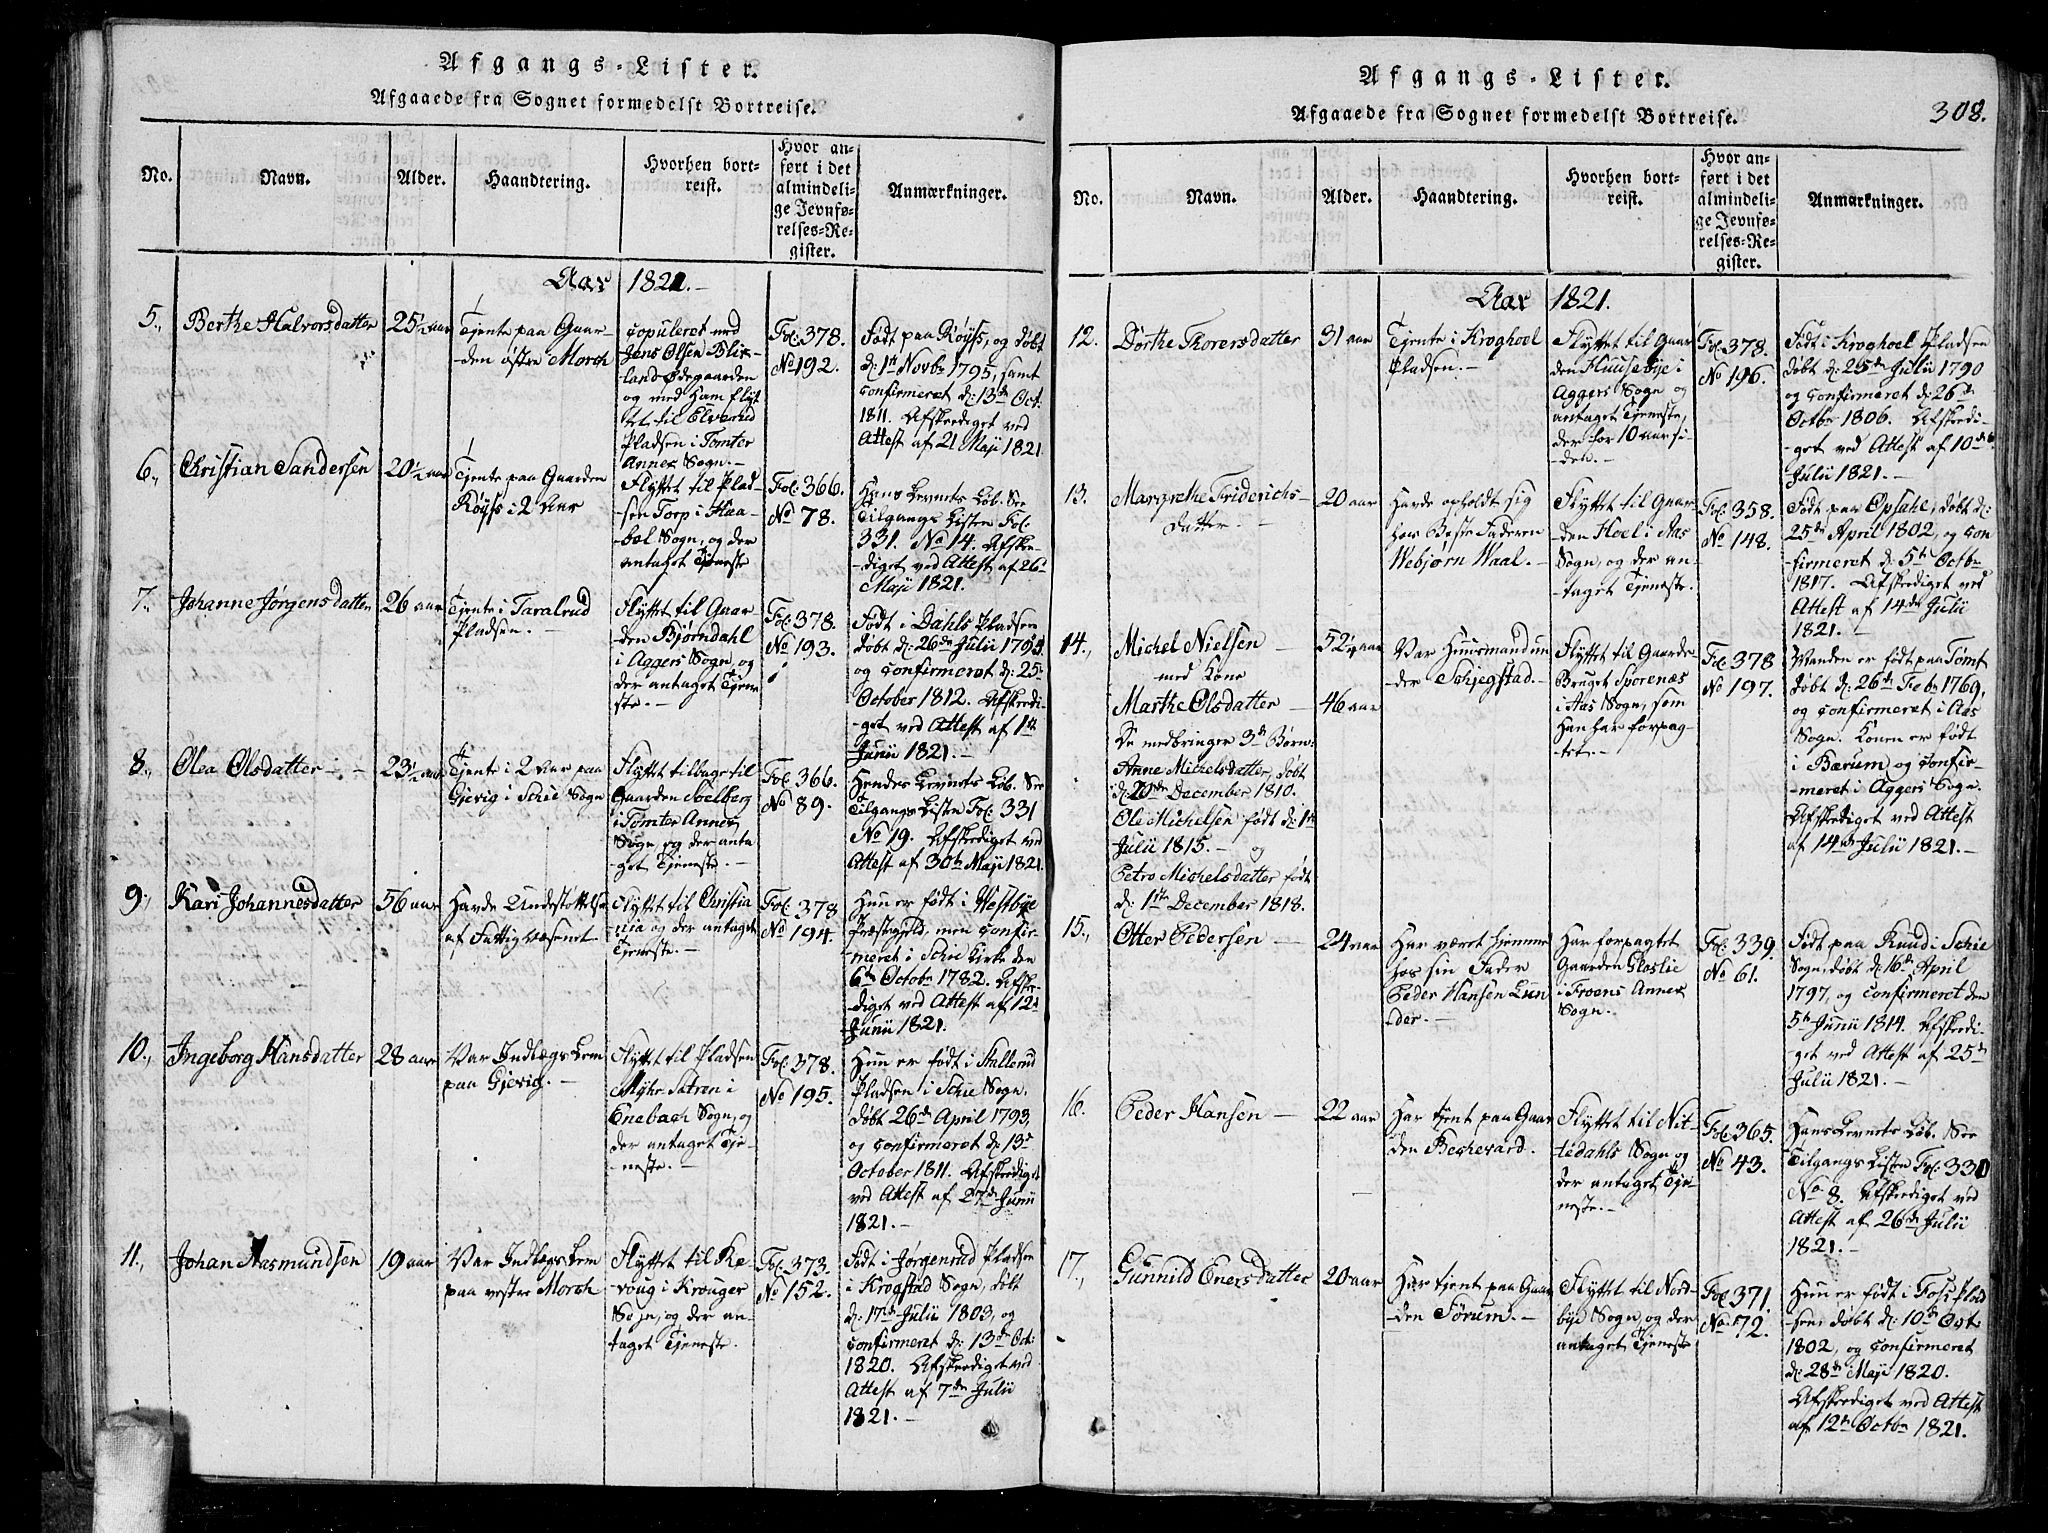 Afgangs-Lister.
Afgaaede fra Sognet formedelst Bortreise.
No.
Navn.
Alder.
Haandtering.
Hvorhen bort-
reist.
Hvor an-
ført i det
almindeli-
ge Jevnfø-
relses-Re-
gister.
Anmærkninger.
Aar 1821.-
5.,
Berthe Halvorsdatter
25½ aar
Tjente paa Gaar-
den østre Morch
copuleret med
Jens Olsen Blix-
land Ødegaarden
og med Ham flyt
tet til Elverhid
Pladsen i Tomter
Annex Sogn.-
Fol: 378.
No 192.
Født paa Røyss, og døbt
d: 1te Novbr 1795, samt
confirmeret d: 13de Oct:
1811. Afskrediget ved
Attest af 21 Maji 1821.
6.,
Christian Sandersen
20½ aar
Tjente paa Gaarden
Røyss i 2 Aar
Flyttet til Plad-
sen Torp i Haa-
bøl Sogn, og der
antaget Tjeneste
Fol: 366.
No 78.
Hans Levnets Løb. See
Tilgangs Listen Fol:
331. No 14. Afskre-
diget ved Attest af 26
Maji 1821.
7.,
Johanne Jørgensdatter
26 aar
Tjente i Taralrud
Pladsen.-
Flyttet til Gaar-
den Bjørndahl
i Aggers Sogn, og
der antaget Tjene
ste.-
Fol: 378
No 193.
Født i Dahls Pladsen
døbt d: 26de Julii 1795
og confirmeret d: 25
October 1812. Afskredi-
get ved Attest af 1te
Junii 1821.-
8.,
Olea Olsdatter-
23½ aar
Tjente i 2 Aar paa
Gjevig i Schie Sogn
Flyttet tilbage til
Gaarden Soelberg
i Tomter Annex
Sogn, og der anta
get Tjeneste.-
Fol: 366.
No 89.
Hendes Levnets Løb. See
Tilgangs Listen Fol: 331
No 19. Afskrediget ved
Attest af 30te Maji 1821.
9.,
Kari Johannesdatter
56 aar
Havde Understøttelse
af Fattigvæsenet
Flyttet til Christia
nia og der antaget
Tjeneste.-
Fol: 378
No 194.
Hun er født i Vestbye
Præstegjeld, men confir-
meret i Schie Kirke den
6te Octobr 1782. Afskre-
diget ved Attest af 12
Junii 1821.
10.,
Ingeborg Hansdatter
28 aar
Var Indlægs Lem
paa Gjevig.-
Flyttet til Pladsen
Myhr Satren i
Enebach Sogn, og
der antaget Tje-
neste.-
Fol: 378.
No 195.
Hun er født i Stallerud
Pladsen i Schie Sogn,
døbt 26de April 1793,
og confirmeret d: 13
October 1811. Afskrediget
ved Attest af 27de Junii
1821.-
11.,
Johan Aasmundsen
19 aar
Var Indlægs Lem
paa vestre Morch
Flyttet til Ra-
voug i Krouger
Sogn, og der an-
taget Tjeneste.
Fol: 373.
No 152.
Født i Jørgenrud Pladsen
i Krogstad Sogn, døbt
d: 17de Julii 1803, og
confirmeret d: 13de Oct:
1820. Afskrediget ved
Attest af 7de Julii
1821.-
Afgangs-Lister.
Afgaaede fra Sognet formedelst Bortreise.
308.
No.
Navn.
Alder.
Haandtering.
Hvorhen bort-
reist.
Hvor an-
ført i det
almindeli-
ge Jevnfø-
relses-Re-
gister.
Anmærkninger.
Aar 1821.
12.
Dorthe Thorersdatter
31 aar
Tjente i Kroghoel
Pladsen.-
Flyttet til Gaar
den Huusebye i
Aggers Sogn og
antaget Tjeneste,
der for 10 aar si-
den.-
Fol: 378.
No 196.
Født i Kroghoel Pladsen
døbt d: 25de Julii 1790
og confirmeret d: 26de
Octobr 1806. Afskredi-
get ved Attest af 10de
Julii 1821.-
13.
Margrethe Friderichs-
datter.-
20 aar
Havde opholdt sig
hos Beste Faderen
Webjørn Waal.-
Flyttet til Gaar-
den Hoel i Aas
Sogn, og der an-
taget Tjeneste.
Fol: 358.
No 148.
Født paa Opsahl, døbt d:
25de April 1802, og con
firmeret d: 5te Octbr
1817. Afskrediget ved
Attest af 14de Julii
1821.-
14.,
Michel Nielsen-
med Kone
Marthe Olsdatter-
De medbringer 3de Børn:
Anne Michelsdatter, døbt
d: 20de December 1810.
Ole Michelsen født d: 1te
Julii 1815.- og
Petro Michelsdatter født
d: 1te December 1818.
52¼ aar
46 aar
Var Huusmand un
der Schjegstad.-
Flyttet til Gaarde-
Bruget Sporenæs
i Aas Sogn, som
Han har forpag-
tet.-
Fol: 378
No 197.
Manden er født paa Tomt
døbt d: 26de Febr 1769,
og confirmeret i Aas
Sogn. Konen er født
i Bærum og confir-
meret i Aggers Sogn.
Afskrediget ved Attest
af 14de Julii 1821.-
15.,
Otter Pedersen-
24 aar
Har været hjemme
hos sin Fader
Peder Hansen Lun
der.-
Har forpagtet
Gaarden Gloslie
i Froens Annex
Sogn.
Fol: 339.
No 61.
Født paa Ruud i Schie
Sogn, døbt d: 16de April
1797, og confirmeret den
5te Junii 1814. Afskredi-
get ved Attest af 25de
Julii 1821.-
16.
Peder Hansen-
22 aar
Har tjent paa Gaar
den Bechevard.
Flyttet til Nit-
tedahls Sogn og
der antaget Tje-
neste.-
Fol: 365.
No 43.
Hans Levnets Løb. See
Tilgangs Listen Fol: 330
No 8. Afskrediget ved
Attest af 26de Julii
1821.-
17.,
Gunnild Enersdatter
20 aar
Har tjent paa Gaar
den Sørum.-
Flyttet til Nord-
bye Sogn, og der
antaget Tjeneste
Fol: 371.
No 72.
Hun er født i Foss Plad
sen, døbt d: 10de Oct:
1802, og confirmeret
d: 28de Maji 1820.
Afskrediget ved Attest
af 12te Octbr 1821.